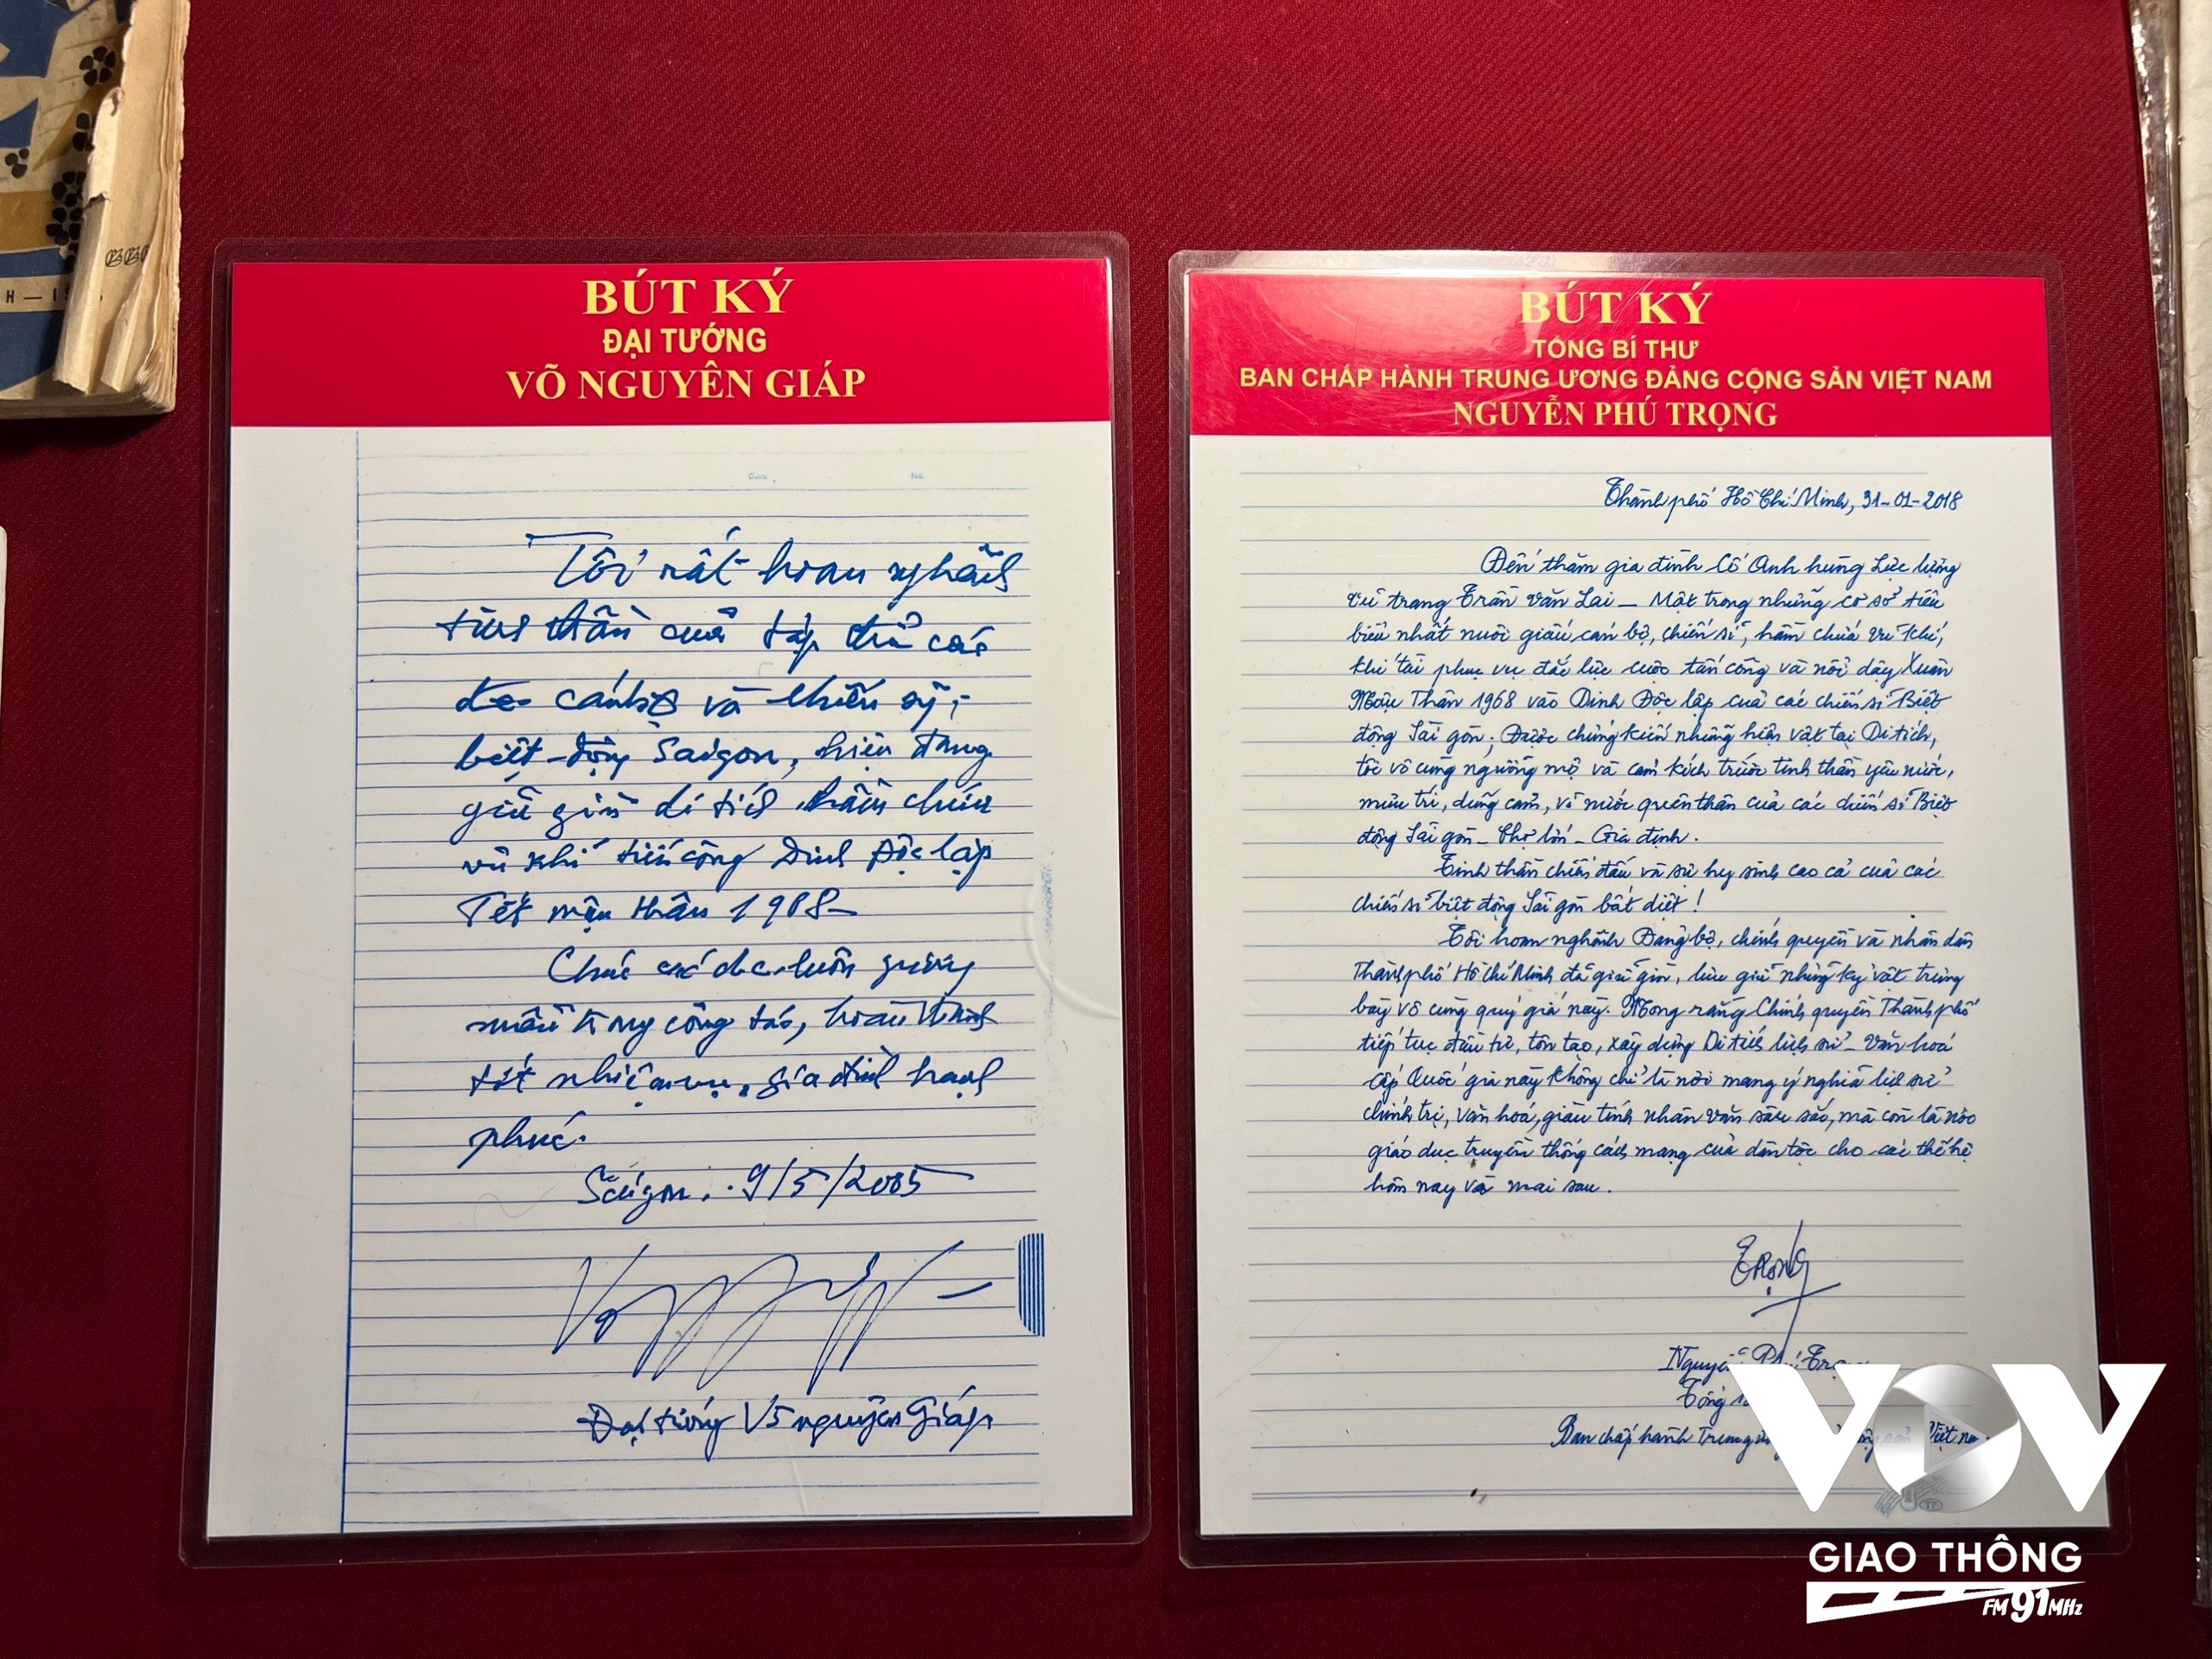 BÚT KÝ
ĐẠI TƯỚNG
VÕ NGUYÊN GIÁP
Date No.
Tôi rất hoan nghênh
tinh thần của tập thể các
cán bộ và chiến sỹ,
biệt-động Saigon, hiện đang
giữ gìn di tích hầm chứa
vũ khí tiến công Dinh Độc lập
Tết mậu thân 1968-
Chúc các đ/c luôn gương
mẫu trong công tác, hoàn thành
tốt nhiệm vụ, gia đình hạnh
phúc.
Sàigon, 9/5/2005
Đại tướng Võ nguyên Giáp
BÚT KÝ
TỔNG BÍ THƯ
BAN CHẤP HÀNH TRUNG ƯƠNG ĐẢNG CỘNG SẢN VIỆT NAM
NGUYỄN PHÚ TRỌNG
Thành phố Hồ Chí Minh, 31-01-2018
Đến thăm gia đình Cố Anh hùng Lực lượng
vũ trang Trần Văn Lai - Một trong những cơ sở tiêu
biểu nhất nuôi giấu cán bộ, chiến sĩ, hầm chứa vũ khí,
khí tài phục vụ đắc lực cuộc tấn công và nổi dậy Xuân
Mậu Thân 1968 vào Dinh Độc lập của các chiến sĩ Biệt
động Sài gòn; Được chứng kiến những hiện vật tại Di tích,
tôi vô cùng ngưỡng mộ và cảm kích trước tinh thần yêu nước,
mưu trí, dũng cảm, vì nước quên thân của các chiến sĩ Biệt
động Sài gòn - Chợ lớn - Gia định.
Tinh thần chiến đấu và sự hy sinh cao cả của các
chiến sĩ biệt động Sài gòn bất diệt!
Tôi hoan nghênh Đảng bộ, chính quyền và nhân dân
Thành phố Hồ Chí Minh đã giữ gìn, lưu giữ những kỷ vật trưng
bày vô cùng quý giá này. Mong rằng Chính quyền Thành phố
tiếp tục đầu tư, tôn tạo, xây dựng Di tích lịch sử - Văn hoá
cấp Quốc gia này không chỉ là nơi mang ý nghĩa lịch sử
chính trị, văn hoá, giàu tính nhân văn sâu sắc, mà còn là nơi
giáo dục truyền thống cách mạng của dân tộc cho các thế hệ
hôm nay và mai sau.
Trọng
Nguyễn Phú Trọng
Tổng
Ban chấp hành Trung Việt
VOV
GIAO THÔNG
FM 91 MHz